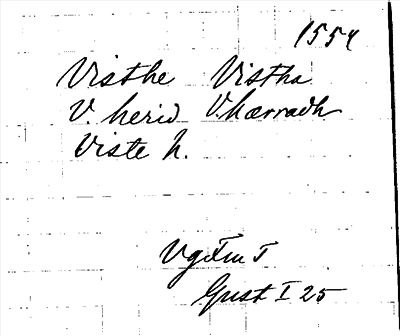 1554
Visthe Vistha
V. herid V. hærradh
Viste h.
Gust I 25